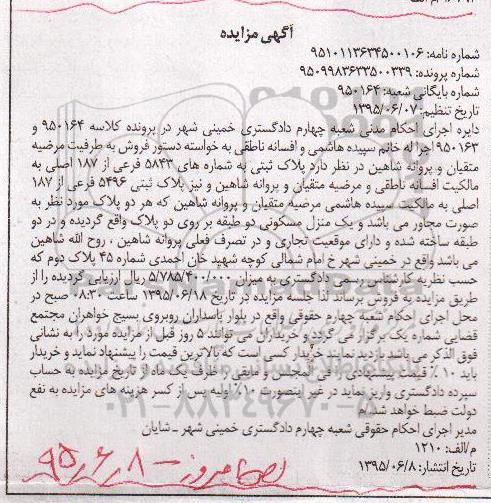 آگهی مزایده
شماره نامه: ۹۵۱۰۱۱۳۶۳۴۵۰۰۱۰۶
شماره پرونده: ۹۵۰۹۹۸۳۶۳۳۵۰۰۳۳۹
شماره بایگانی شعبه: ۹۵۰۱۶۴
تاریخ تنظیم: ۱۳۹۵/۰۶/۰۷
دایره اجرای احکام مدنی شعبه چهارم دادگستری خمینی شهر در پرونده کلاسه ۹۵۰۱۶۴ و
۹۵۰۱۶۳ اجرا له خانم سپیده هاشمی و افسانه ناطقی به خواسته دستور فروش به طرفیت مرضیه
متقیان و پروانه شاهین در نظر دارد پلاک ثبتی به شماره های ۵۸۴۳ فرعی از ۱۸۷ اصلی به
مالکیت افسانه ناطقی و مرضیه متقیان و پروانه شاهین و نیز پلاک ثبتی ۵۴۹۶ فرعی از ۱۸۷
اصلی به مالکیت سپیده هاشمی مرضیه متقیان و پروانه شاهین که هر دو پلاک مورد نظر به
صورت مجاور می باشد و یک منزل مسکونی دو طبقه بر روی دو پلاک واقع گردیده و در دو
طبقه ساخته شده و دارای موقعیت تجاری و در تصرف فعلی پروانه شاهین ، روح الله شاهین
می باشد واقع در خمینی شهر خ امام شمالی کوچه شهید خان احمدی شماره ۴۵ پلاک دوم که
حسب نظریه کارشناس رسمی دادگستری به میزان ۵/۷۸۵/۴۰۰/۰۰۰ ریال ارزیابی گردیده را از
طریق مزایده به فروش برساند لذا جلسه مزایده در تاریخ ۱۳۹۵/۰۶/۱۸ ساعت ۰۸:۳۰ صبح در
محل اجرای احکام شعبه چهارم حقوقی واقع در بلوار پاسداران روبروی بسیج خواهران مجتمع
قضایی شماره یک برگزار می گردد و خریداران می توانند ۵ روز قبل از مزایده مورد را به نشانی
فوق الذکر می باشد بازدید نمایند خریدار کسی است که بالاترین قیمت را پیشنهاد نماید و خریدار
باید ۱۰ ٪ قیمت پیشنهادی را فی المجلس و مابقی را ظرف یک ماه از تاریخ مزایده به حساب
سپرده دادگستری واریز نماید در غیر اینصورت ۱۰٪ اولیه پس از کسر هزینه های مزایده به نفع
دولت ضبط خواهد شد.م
مدیر اجرای احکام حقوقی شعبه چهارم دادگستری خمینی شهر ـ شایان
م/الف: ۱۲۱۰
تاریخ انتشار: ۱۳۹۵/۰۶/۸
۹۵،۶،۸
۰۲۱-۸۸۳۴۹۶۷۰-۵